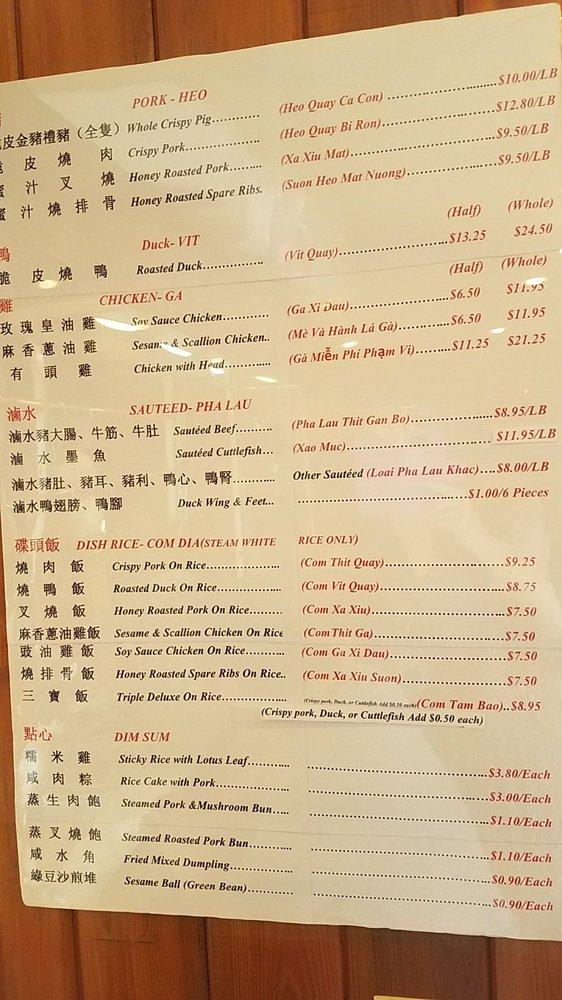 PORK - HEO
皮金豬禮豬（全隻） Whole Crispy Pig............ (Heo Quay Ca Con) ........................$10.00/LB
脆皮燒肉 Crispy Pork.................... (Heo Quay Bi Ron)..........................$12.80/LB
蜜汁叉燒 Honey Roasted Pork......... (Xa Xiu Mat)..................................$9.50/LB
蜜汁燒排骨 Honey Roasted Spare Ribs. (Suon Heo Mat Nuong).....................$9.50/LB
(Half) (Whole)
鴨 Duck- VIT
脆皮燒鴨 Roasted Duck.................. (Vit Quay).........................$13.25 $24.50
(Half) (Whole)
雞 CHICKEN- GA
玫瑰皇油雞 Soy Sauce Chicken............ (Ga Xi Dau)........................$6.50 $11.95
麻香蔥油雞 Sesame & Scallion Chicken.. (Mè Và Hành Lá Gà)..............$6.50 $11.95
有頭雞 Chicken with Head............ (Gà Miễn Phí Phạm Vi).........$11.25 $21.25
滷水 SAUTEED- PHA LAU
滷水豬大腸、牛筋、牛肚 Sautéed Beef............ (Pha Lau Thit Gan Bo).....................$8.95/LB
滷水墨魚 Sautéed Cuttlefish... (Xao Muc).....................................$11.95/LB
滷水豬肚、豬耳、豬利、鴨心、鴨腎............ Other Sautéed (Loai Pha Lau Khac)....$8.00/LB
滷水鴨翅膀、鴨腳 Duck Wing & Feet... ..........................................$1.00/6 Pieces
碟頭飯 DISH RICE- COM DIA(STEAM WHITE RICE ONLY)
燒肉飯 Crispy Pork On Rice.................. (Com Thit Quay)..............................$9.25
燒鴨飯 Roasted Duck On Rice............... (Com Vit Quay)................................$8.75
叉燒飯 Honey Roasted Pork On Rice......... (Com Xa Xiu)..................................$7.50
麻香蔥油雞飯 Sesame & Scallion Chicken On Rice (ComThit Ga)..................................$7.50
豉油雞飯 Soy Sauce Chicken On Rice............ (Com Ga Xi Dau)..............................$7.50
燒排骨飯 Honey Roasted Spare Ribs On Rice.. (Com Xa Xiu Suon)...........................$7.50
三寶飯 Triple Deluxe On Rice............... (Crispy pork, Duck, or Cuttlefish Add $0.50 each)(Com Tam Bao)..$8.95
(Crispy pork, Duck, or Cuttlefish Add $0.50 each)
點心 DIM SUM
糯米雞 Sticky Rice with Lotus Leaf......... ..........................................$3.80/Each
咸肉粽 Rice Cake with Pork.................. ..........................................$3.00/Each
蒸生肉飽 Steamed Pork &Mushroom Bun...... ..........................................$1.10/Each
蒸叉燒飽 Steamed Roasted Pork Bun............ ..........................................$1.10/Each
咸水角 Fried Mixed Dumpling.................. ..........................................$0.90/Each
綠豆沙煎堆 Sesame Ball (Green Bean)............ ..........................................$0.90/Each